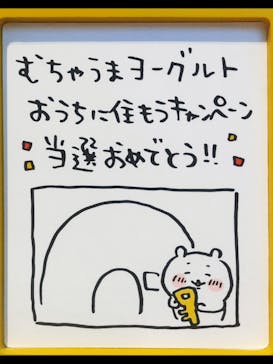 むちゃうまヨーグルト
おうちに住もうキャンペーン
当選おめでとう!!